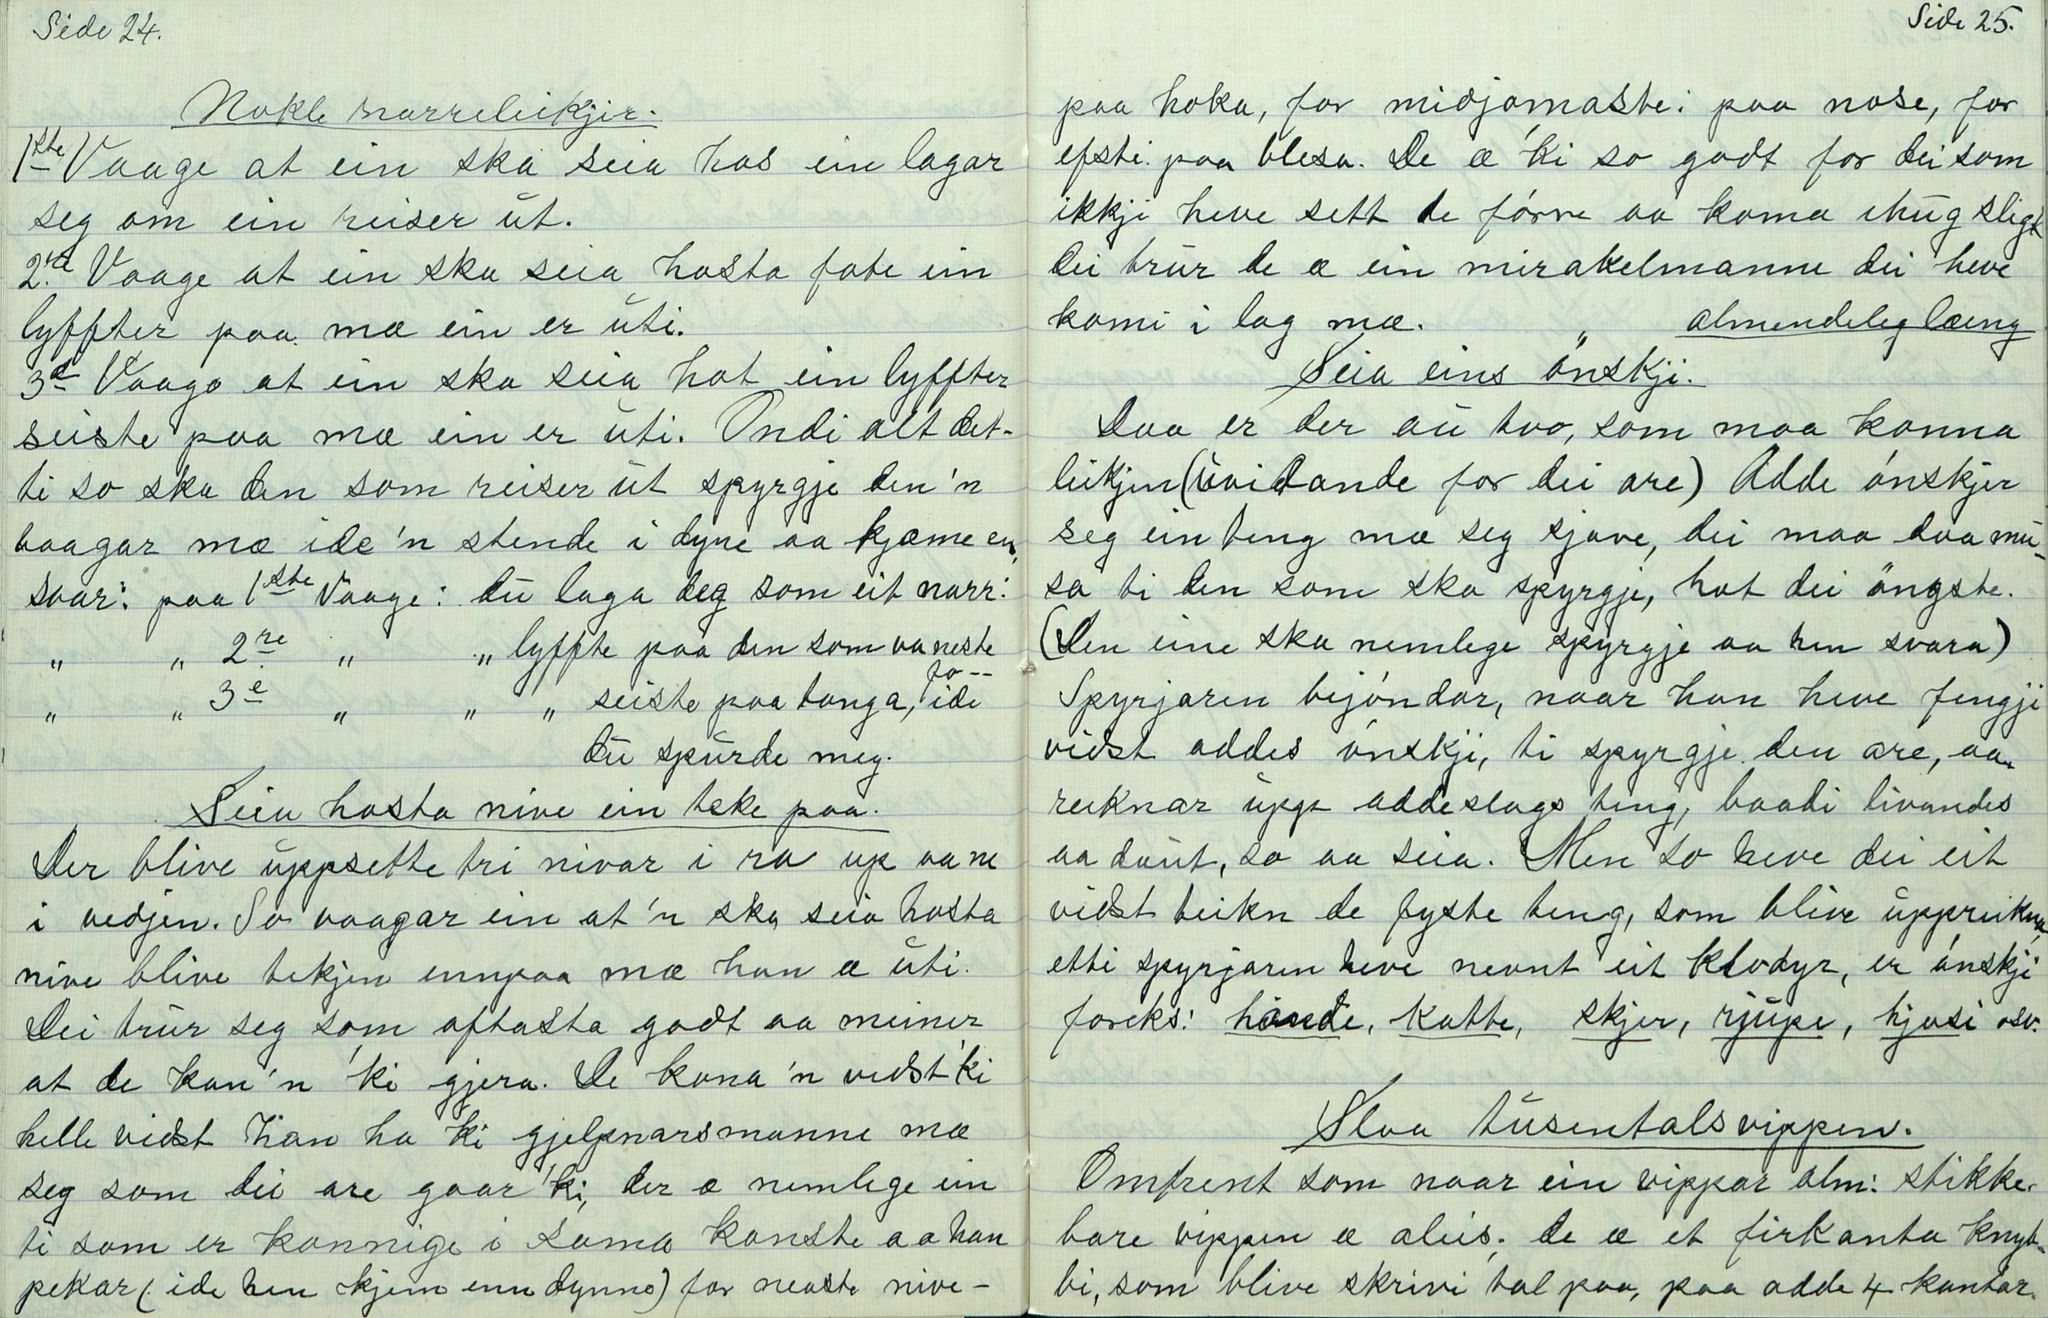 Side 24.
Nokle narreleikjir.
1ste Vaage at ein ska seia hos ein lagar
seg om ein reiser ūt.
2re Vaage at ein ska seia hosta fote ein
lyffter paa mæ ein er ūti.
3e Vaage at ein ska seia hot ein lyffter
seiste paa mæ ein er ūti. Ondi alt det-
ti so ska den som reiser ūt spyrgje den 'n
vaagar mæ ide 'n stende i dyne aa kjæme en,
svar: paa 1ste Vaage: dū laga deg som eit narr:
" " 2re " " lyffte paa den som va neste
" " 3e " " " seiste paa tonga, fo-- ide
dū spūrde meg.
Seia hosta nive ein teke paa.
Der blive ūppsette tri nivar i ra up aa ne
i vedjen. So vaagar ein at 'n ska seia hosta
nive blive tekjen ennpaa mæ han æ ūti.
Dei trūr seg som oftasta godt aa meiner
at de kan 'n 'ki gjera. De kana 'n vedst 'ki
helle vidst han ha 'ki gjelpnarsmanne mæ
seg som dei are gaar 'ki, der æ nemlege ein
ti som er konnige i sama konste aa han
pekar (ide hen kjem enn dynne) for neaste nive-
Side 25.
paa hoka, for midjomaste: paa nose, for
efsti paa blesa. De æ 'ki so godt for dei som
ikkji heve sett de fórre aa koma ihūg sligt
dei trūr de æ ein mirakelmanne dei heve
komi i lag mæ. " almendeleg læeng
Seia eins ónskji.
Daa er der aū tvo, som maa konna
leikjen (ūvidande for dei are) Adde ónskjer
seg ein teng mæ seg sjave, dei maa daa mū-
sa ti den som ska spyrgje, hot dei óngste.
(Den eine ska nemlege spyrgje aa hen svara)
Spyrjaren bejóndar, naar han heve fengji
vidst addes ónskji, ti spyrgje den are, aa
reiknar ūpp addeslags teng, baadi livandes
aa daūt, so aa seia. Men so heve dei eit
vidst teikn de fyste teng, som blive ūppreikna
etti spyrjaren heve nevnt eit klodyr, er ónskji
foreks: hónde, Katte, skjer, rjūpe, hjasi osv.
Slaa tūsentalsvippen.
Omfrent som naar ein vippar alm: stikke-
bare vippen æ aleis, de æ et firkanta knyb-
bi, som blive skrivi tal paa, paa adde 4 kantar.